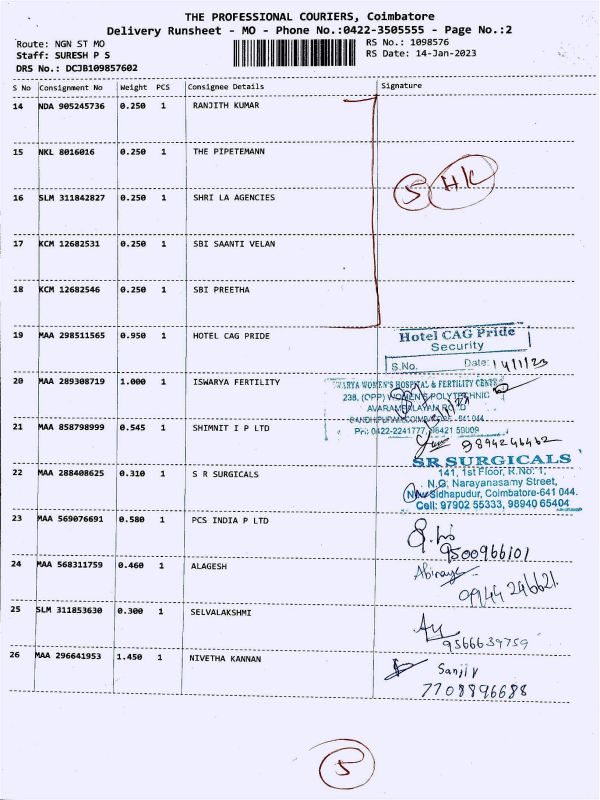 THE PROFESSIONAL COURIERS, Coimbatore
Delivery Runsheet - MO - Phone No.:0422-3505555 - Page No.:2
Route: NGN ST MO
RS No.: 1098576
Staff: SURESH P S
RS Date: 14-Jan-2023
DRS No.: DCJB109857602
S No Consignment No Weight PCS Consignee Details Signature
14 NDA 905245736 0.250 1 RANJITH KUMAR
15 NKL 8016016 0.250 1 THE PIPETEMANN
5 HK
16 SLM 311842827 0.250 1 SHRI LA AGENCIES
17 KCM 12682531 0.250 1 SBI SAANTI VELAN
18 KCM 12682546 0.250 1 SBI PREETHA
19 MAA 298511565 0.950 1 HOTEL CAG PRIDE
Hotel CAG Pride
Security
S.No. Date: 14/1/23
20 MAA 289308719 1.000 1 ISWARYA FERTILITY
WOMEN'S HOSPITAL & FERTILITY CENTRE
238, (OPP) WOMEN'S POLYTECHNIC
21 MAA 858798999 0.545 1 SHIMNIT I P LTD
Ph: 0422-2241777,
9894246462
22 MAA 288408625 0.310 1 S R SURGICALS
SR SURGICALS
141, 1st Floor, K.No: 1,
N.G. Narayanasamy Street,
New Sidhapudur, Coimbatore-641 044.
Cell: 97902 55333, 98940 65404
23 MAA 569076691 0.580 1 PCS INDIA P LTD
9500966101
24 MAA 568311759 0.460 1 ALAGESH
09944 246621.
25 SLM 311853630 0.300 1 SELVALAKSHMI
9566639759
26 MAA 296641953 1.450 1 NIVETHA KANNAN
7708896688
5